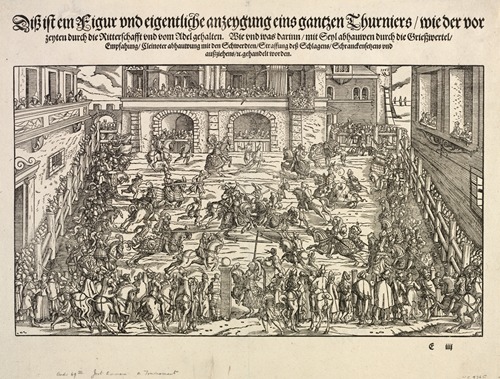 Diß ist ein Figur vnd eigentliche anzeygung eins gantzen Thurniers / wie der vor
zeyten durch die Ritterschafft vnd vom Adel gehalten. Wie vnd was darinn / mit Seyl abhauwen durch die Grießwertel /
Empfahung / Cleinoter abhauwung mit den Schwerdten / Straffung deß Schlagens / Schranckensetzens vnd
außziehens / ꝛc. gehandelt worden.
E iiij
Jost Amman a Tournament